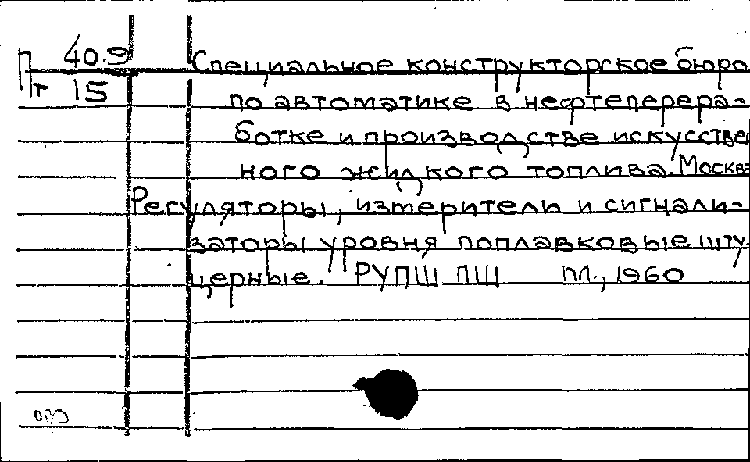 40.9
Пт 15
Специальное конструкторское бюро
по автоматике в нефтеперера-
ботке и производстве искусстве
ного жидкого топлива. Москва
Регуляторы, измерители и сигнали-
заторы уровня поплавковые шту
церные. РУПШ ПШ м., 1960